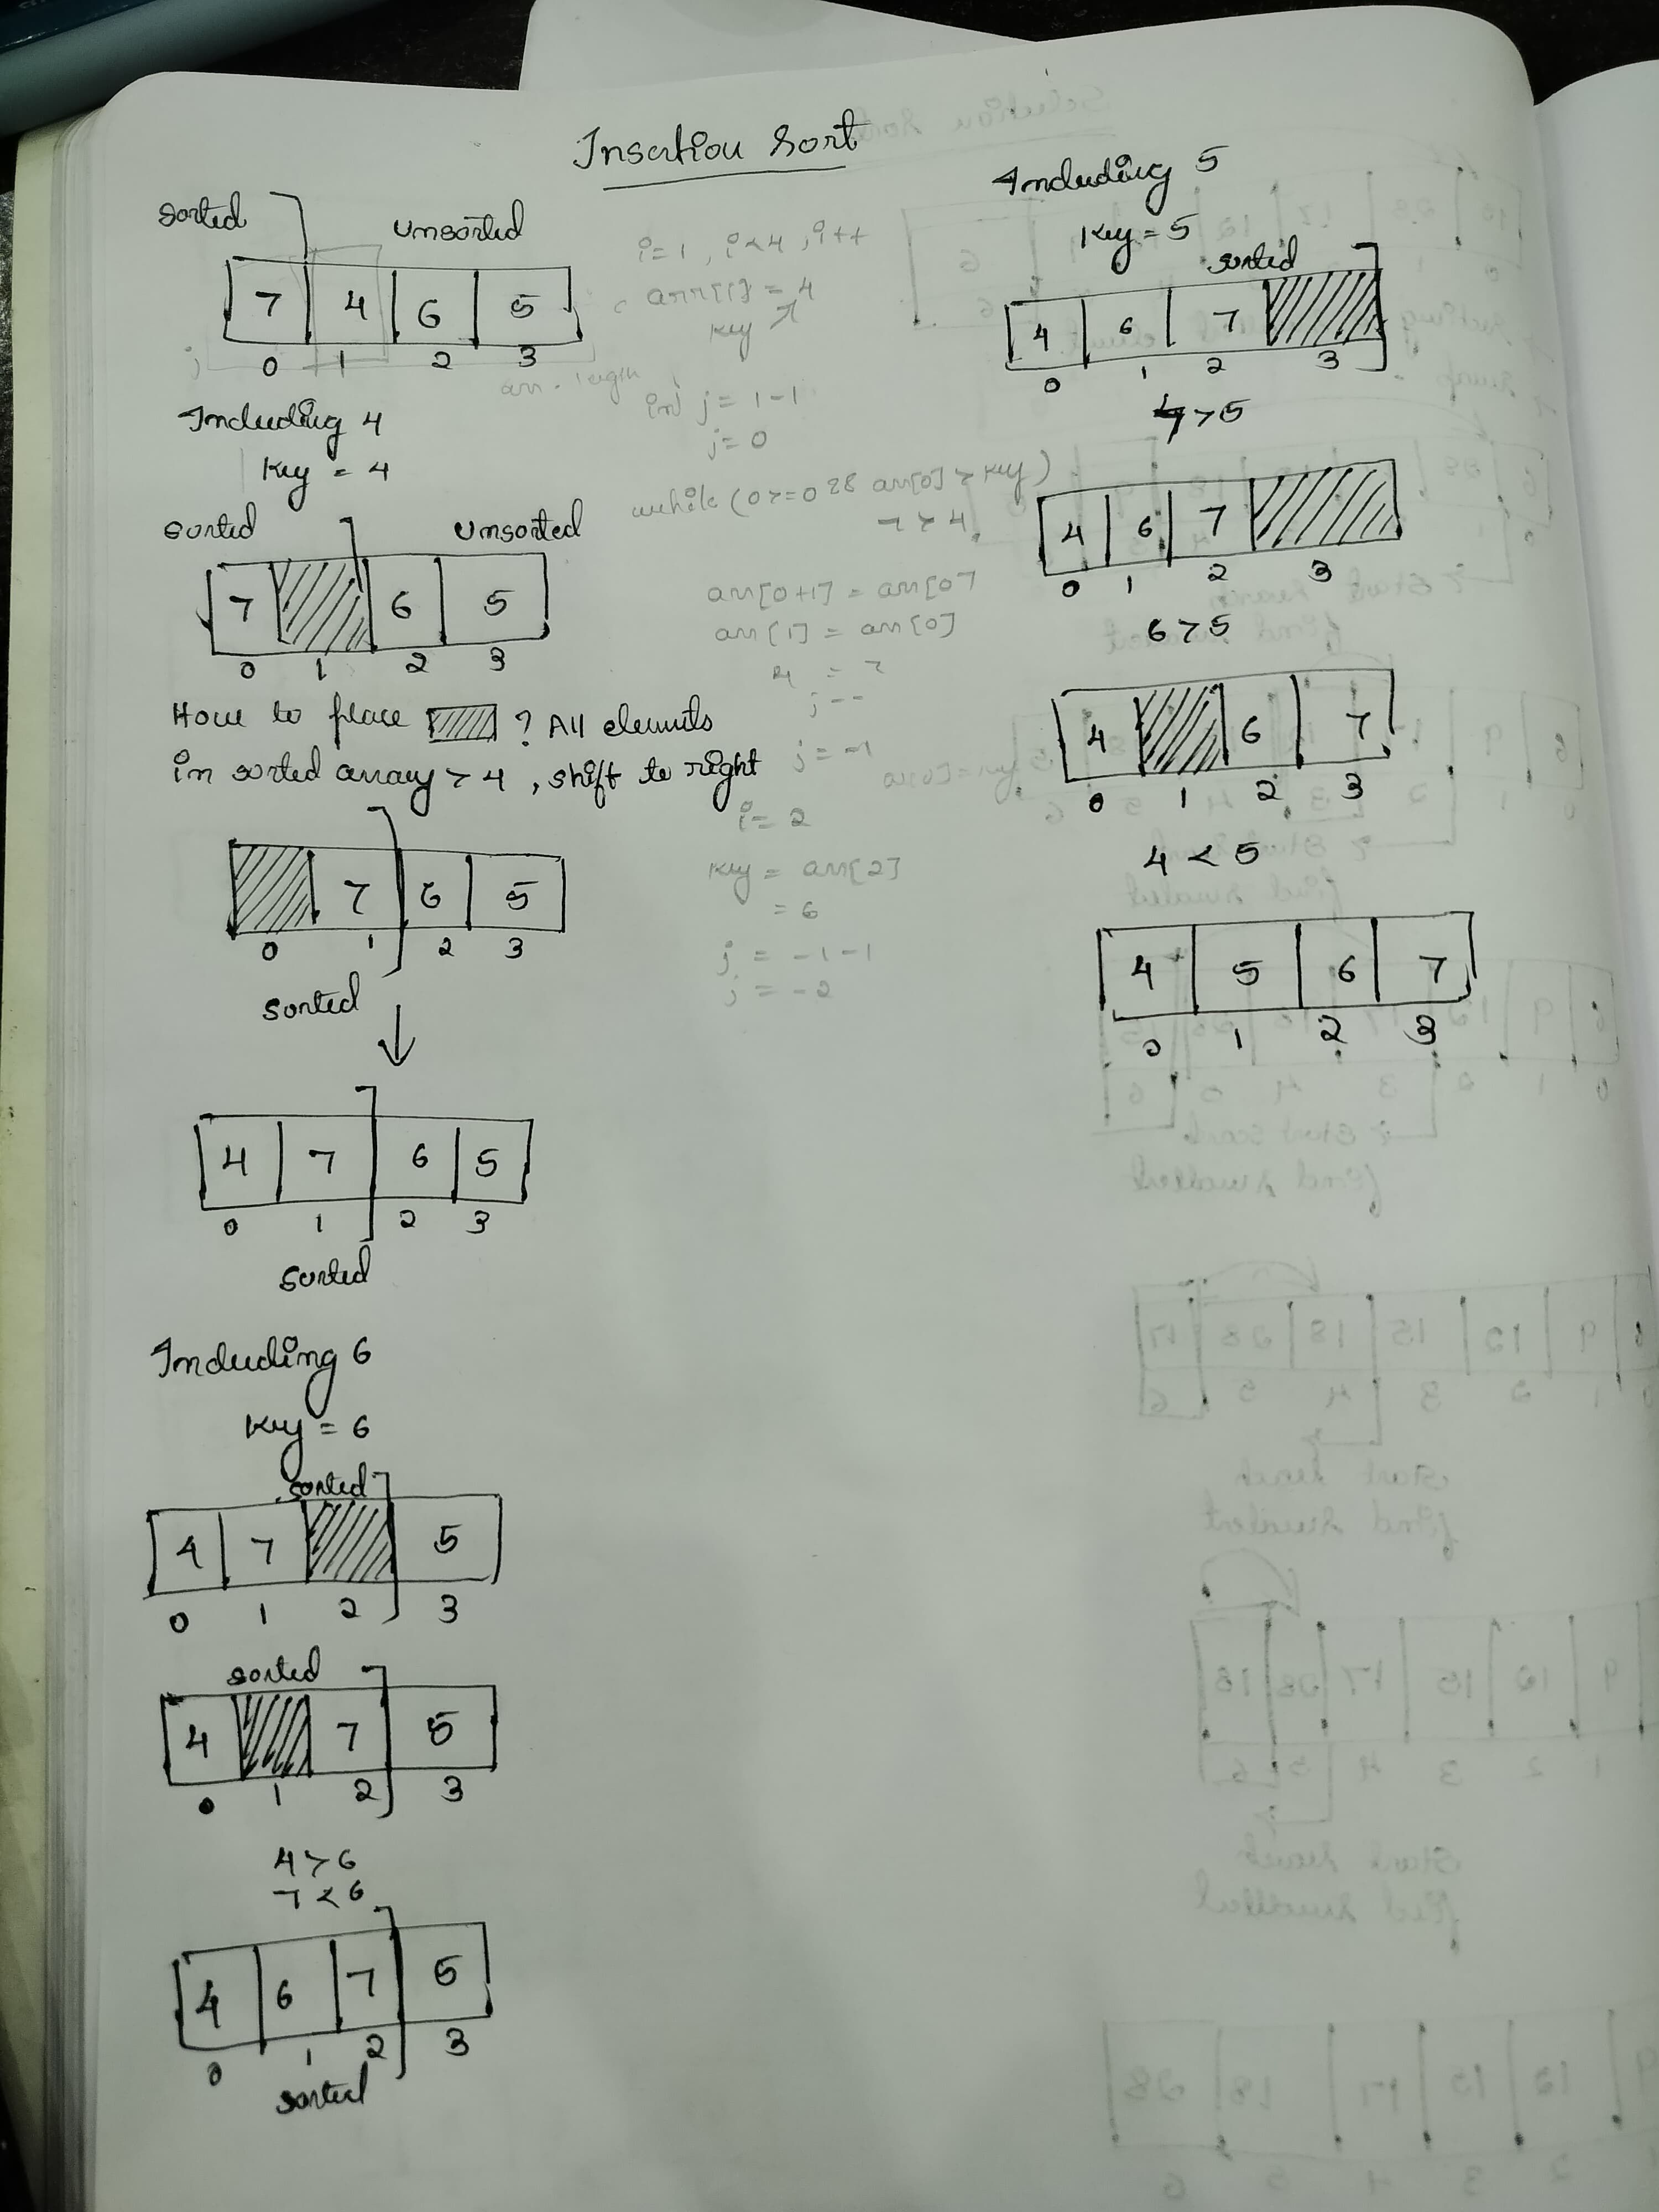 Insertion Sort
sorted unsorted
7 4 6 5
0 1 2 3
Including 4
Key = 4
sorted unsorted
7 6 5
0 1 2 3
How to place ? All elements
in sorted array > 4 , shift to right
7 6 5
0 1 2 3
sorted
4 7 6 5
0 1 2 3
sorted
Including 6
Key = 6
sorted
4 7 5
0 1 2 3
sorted
4 7 5
0 1 2 3
4 > 6
7 < 6
4 6 7 5
0 1 2 3
sorted
i = 1 , i < 4 , i++
arr[1] = 4
key
j
arr . length
int j = 1 - 1
j = 0
while (0 >= 0 && arr[0] > key)
7 > 4
arr[0+1] = arr[0]
arr[1] = arr[0]
4 = 7
j --
j = -1
i = 2
key = arr[2]
= 6
j = -1-1
j = -2
Including 5
Key = 5
sorted
4 6 7
0 1 2 3
7 > 5
4 6 7
0 1 2 3
6 > 5
4 6 7
0 1 2 3
4 < 5
4 5 6 7
0 1 2 3